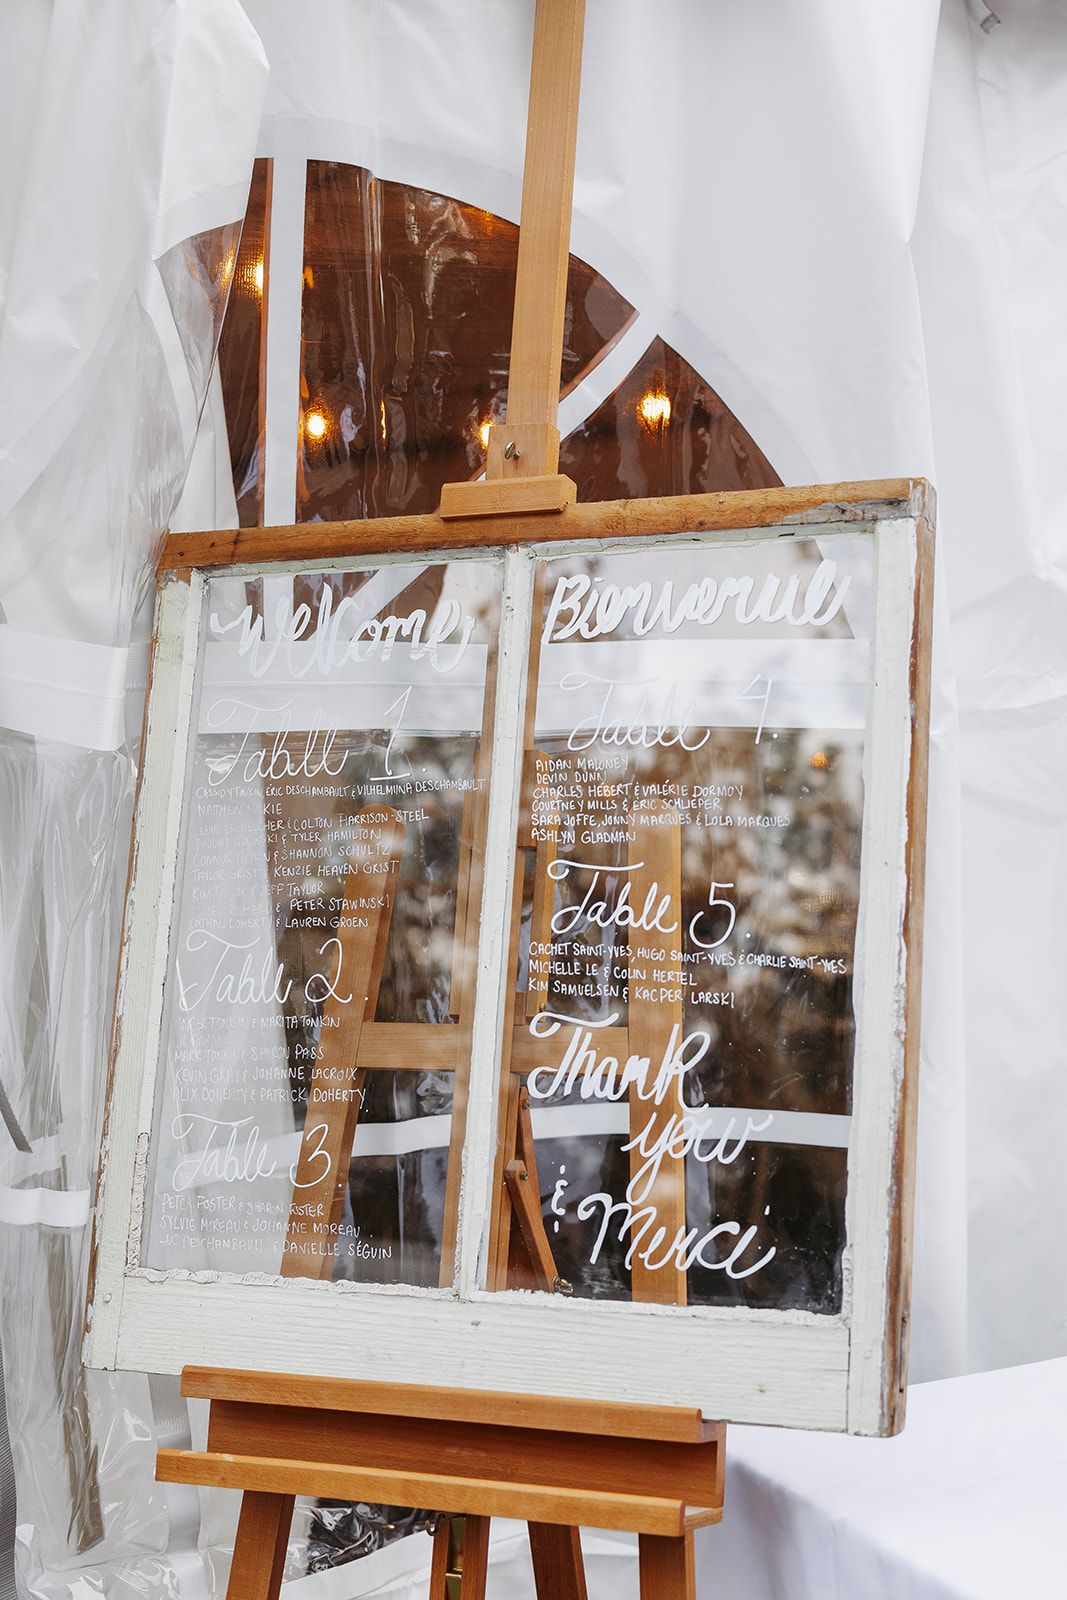 Welcome
Table 1.
CASSIDY TONKIN, ÉRIC DESCHAMBAULT & VILHELMIINA DESCHAMBAULT
MATTHEW
BELCHER & COLTON HARRISON-STEEL
& TYLER HAMILTON
CONNOR TONKIN & SHANNON SCHULTZ
TAYLOR GRIST & KENZIE HEAVEN GRIST
KIM TAYLOR & JEFF TAYLOR
& PETER STAWINSKI
CATHAL DOHERTY & LAUREN GROEN
Table 2.
TONKIN & MARITA TONKIN
MARK TONKIN & SHARON PASS
KEVIN GRAY & JOHANNE LACROIX
ALIX DOHERTY & PATRICK DOHERTY
Table 3.
PETER FOSTER & SHARON FOSTER
SYLVIE MOREAU & JOHANNE MOREAU
LUC DESCHAMBAULT & DAVIELLE SÉGUIN
Bienvenue
Table 4.
AIDAN MALONEY
DEVIN DUNN
CHARLES HÉBERT & VALÉRIE DORMOY
COURTNEY MILLS & ÉRIC SCHLIEPER
SARA JOFFE, JONNY MARQUES & LOLA MARQUES
ASHLYN GLADMAN
Table 5.
CACHET SAINT-YVES, HUGO SAINT-YVES & CHARLIE SAINT-YVES
MICHELLE LE & COLIN HERTEL
KIM SAMUELSEN & KACPER LARSKI
Thank
you
&
Merci